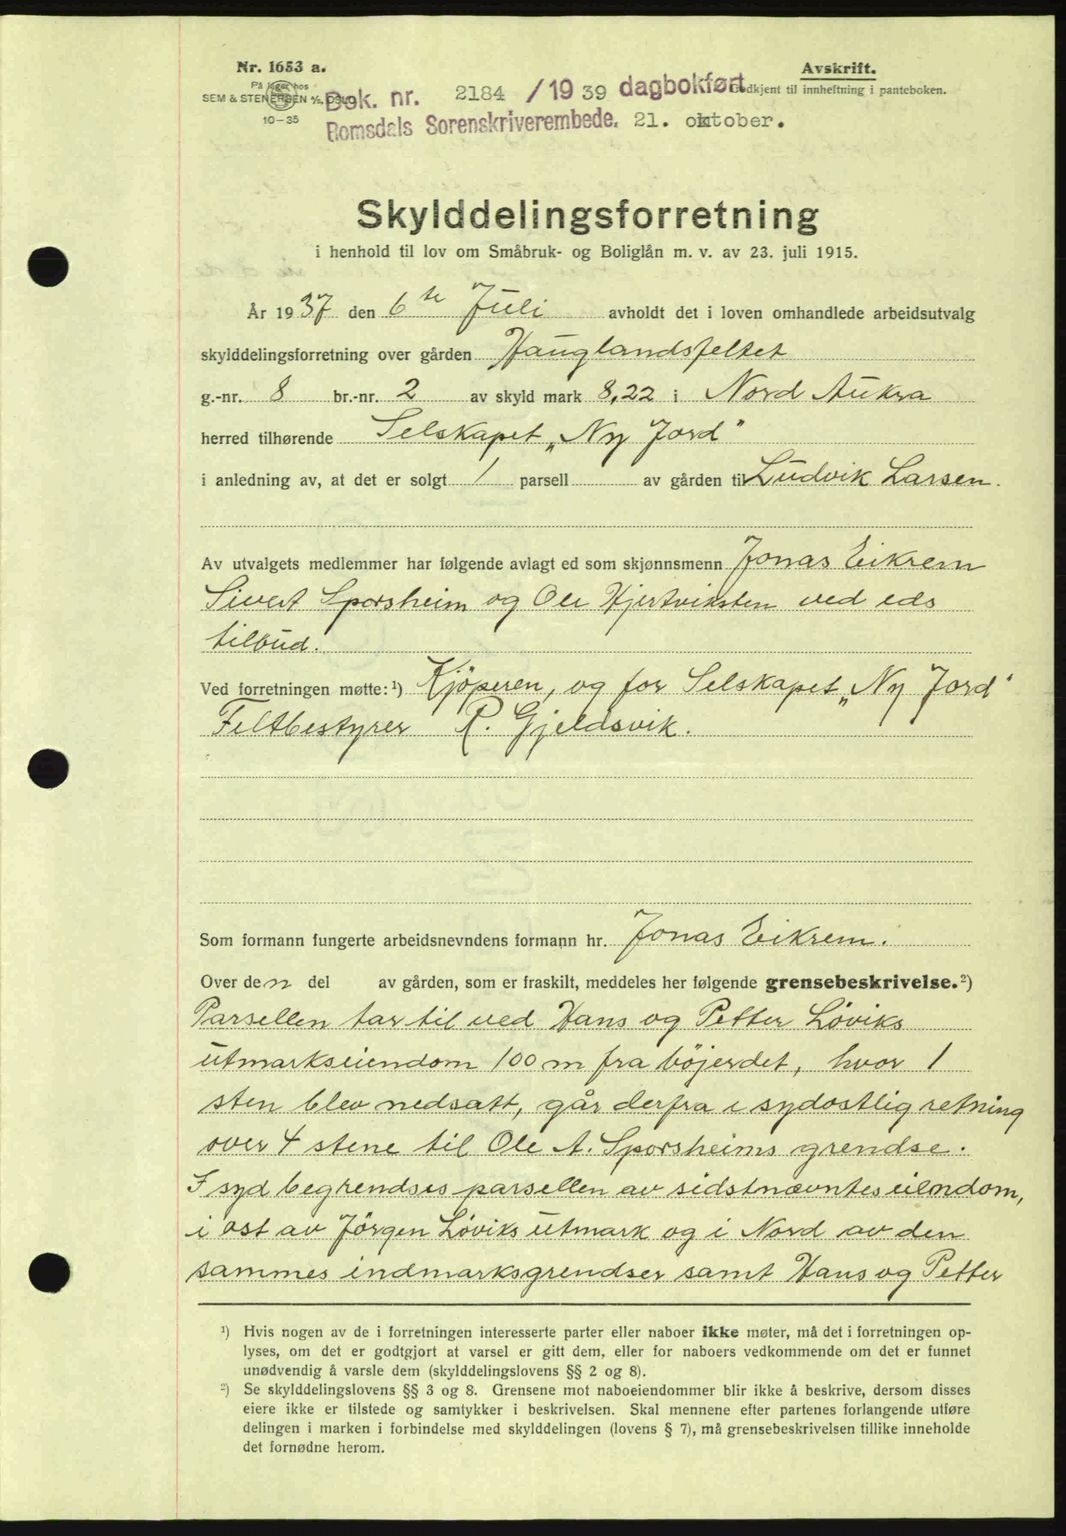 Nr. 1653 a.
På lager hos
SEM & STENERSEN A/S, OSLO
10-35
Avskrift.
Godkjent til innheftning i panteboken.
Dok. nr. 2184 / 19 39 dagbokført
Romsdals Sorenskriverembede. 21. oktober.
Skylddelingsforretning
i henhold til lov om Småbruk- og Boliglån m. v. av 23. juli 1915.
År 1937 den 6te Juli avholdt det i loven omhandlede arbeidsutvalg
skylddelingsforretning over gården Hauglandsfeltet
g.-nr. 8 br.-nr. 2 av skyld mark 8,22 i Nord Aukra
herred tilhørende Selskapet „Ny Jord"
i anledning av, at det er solgt 1 parsell av gården til Ludvik Larsen.
Av utvalgets medlemmer har følgende avlagt ed som skjønnsmenn Jonas Eikrem
Sivert Sporsheim og Ole Hjertviksten ved eds
tilbud.
Ved forretningen møtte: ¹) Kjöperen, og for Selskapet „Ny Jord"
Feltbestyrer P. Gjeldsvik.
Som formann fungerte arbeidsnevndens formann hr. Jonas Eikrem.
Over den del av gården, som er fraskilt, meddeles her følgende grensebeskrivelse. ²)
Parsellen tar til ved Hans og Petter Löviks
utmarkseiendom 100 m fra böjerdet, hvor 1
sten blev nedsatt, går derfra i sydostlig retning
over 4 stene til Ole A. Sporsheims grendse.
I syd begrendses parsellen av sidstnævntes eiendom,
i ost av Jörgen Löviks utmark og i Nord av den
sammes indmarksgrendser samt Hans og Petter
¹) Hvis nogen av de i forretningen interesserte parter eller naboer ikke møter, må det i forretningen op-
lyses, om det er godtgjort at varsel er gitt dem, eller for naboers vedkommende om det er funnet
unødvendig å varsle dem (skylddelingslovens §§ 2 og 8).
²) Se skylddelingslovens §§ 3 og 8. Grensene mot naboeiendommer blir ikke å beskrive, dersom disses
eiere ikke er tilstede og samtykker i beskrivelsen. Skal mennene efter partenes forlangende utføre
delingen i marken i forbindelse med skylddelingen (lovens § 7), må grensebeskrivelsen tillike inneholde
det fornødne herom.